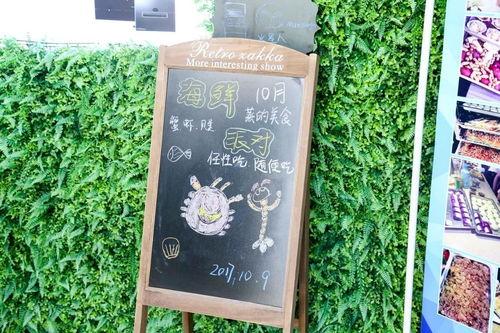 Retro zakka
More interesting show
海鲜 10月
蒸的美食
蟹虾
任性吃 随便吃
2017.10.9